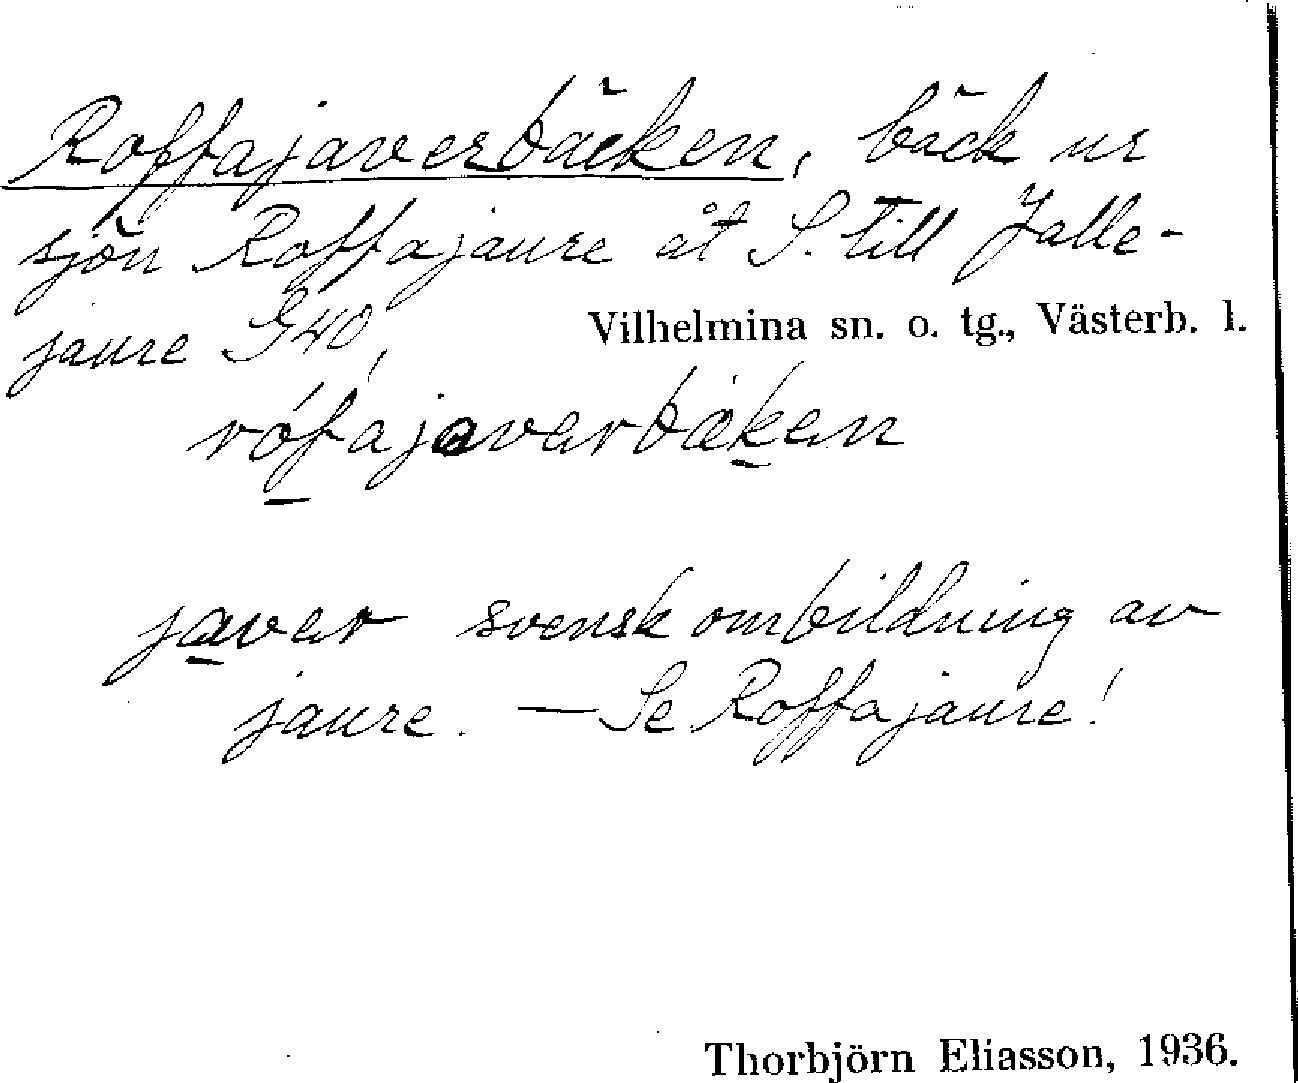 Roffajaverbäcken, bäck ur
sjön Roffajaure åt S. till Jalle-
jaure G40,
Vilhelmina sn. o. tg., Västerb. l.
rófajavarbäken
javar svensk ombildning av
jaure. — Se Roffajaure!
Thorbjörn Eliasson, 1936.